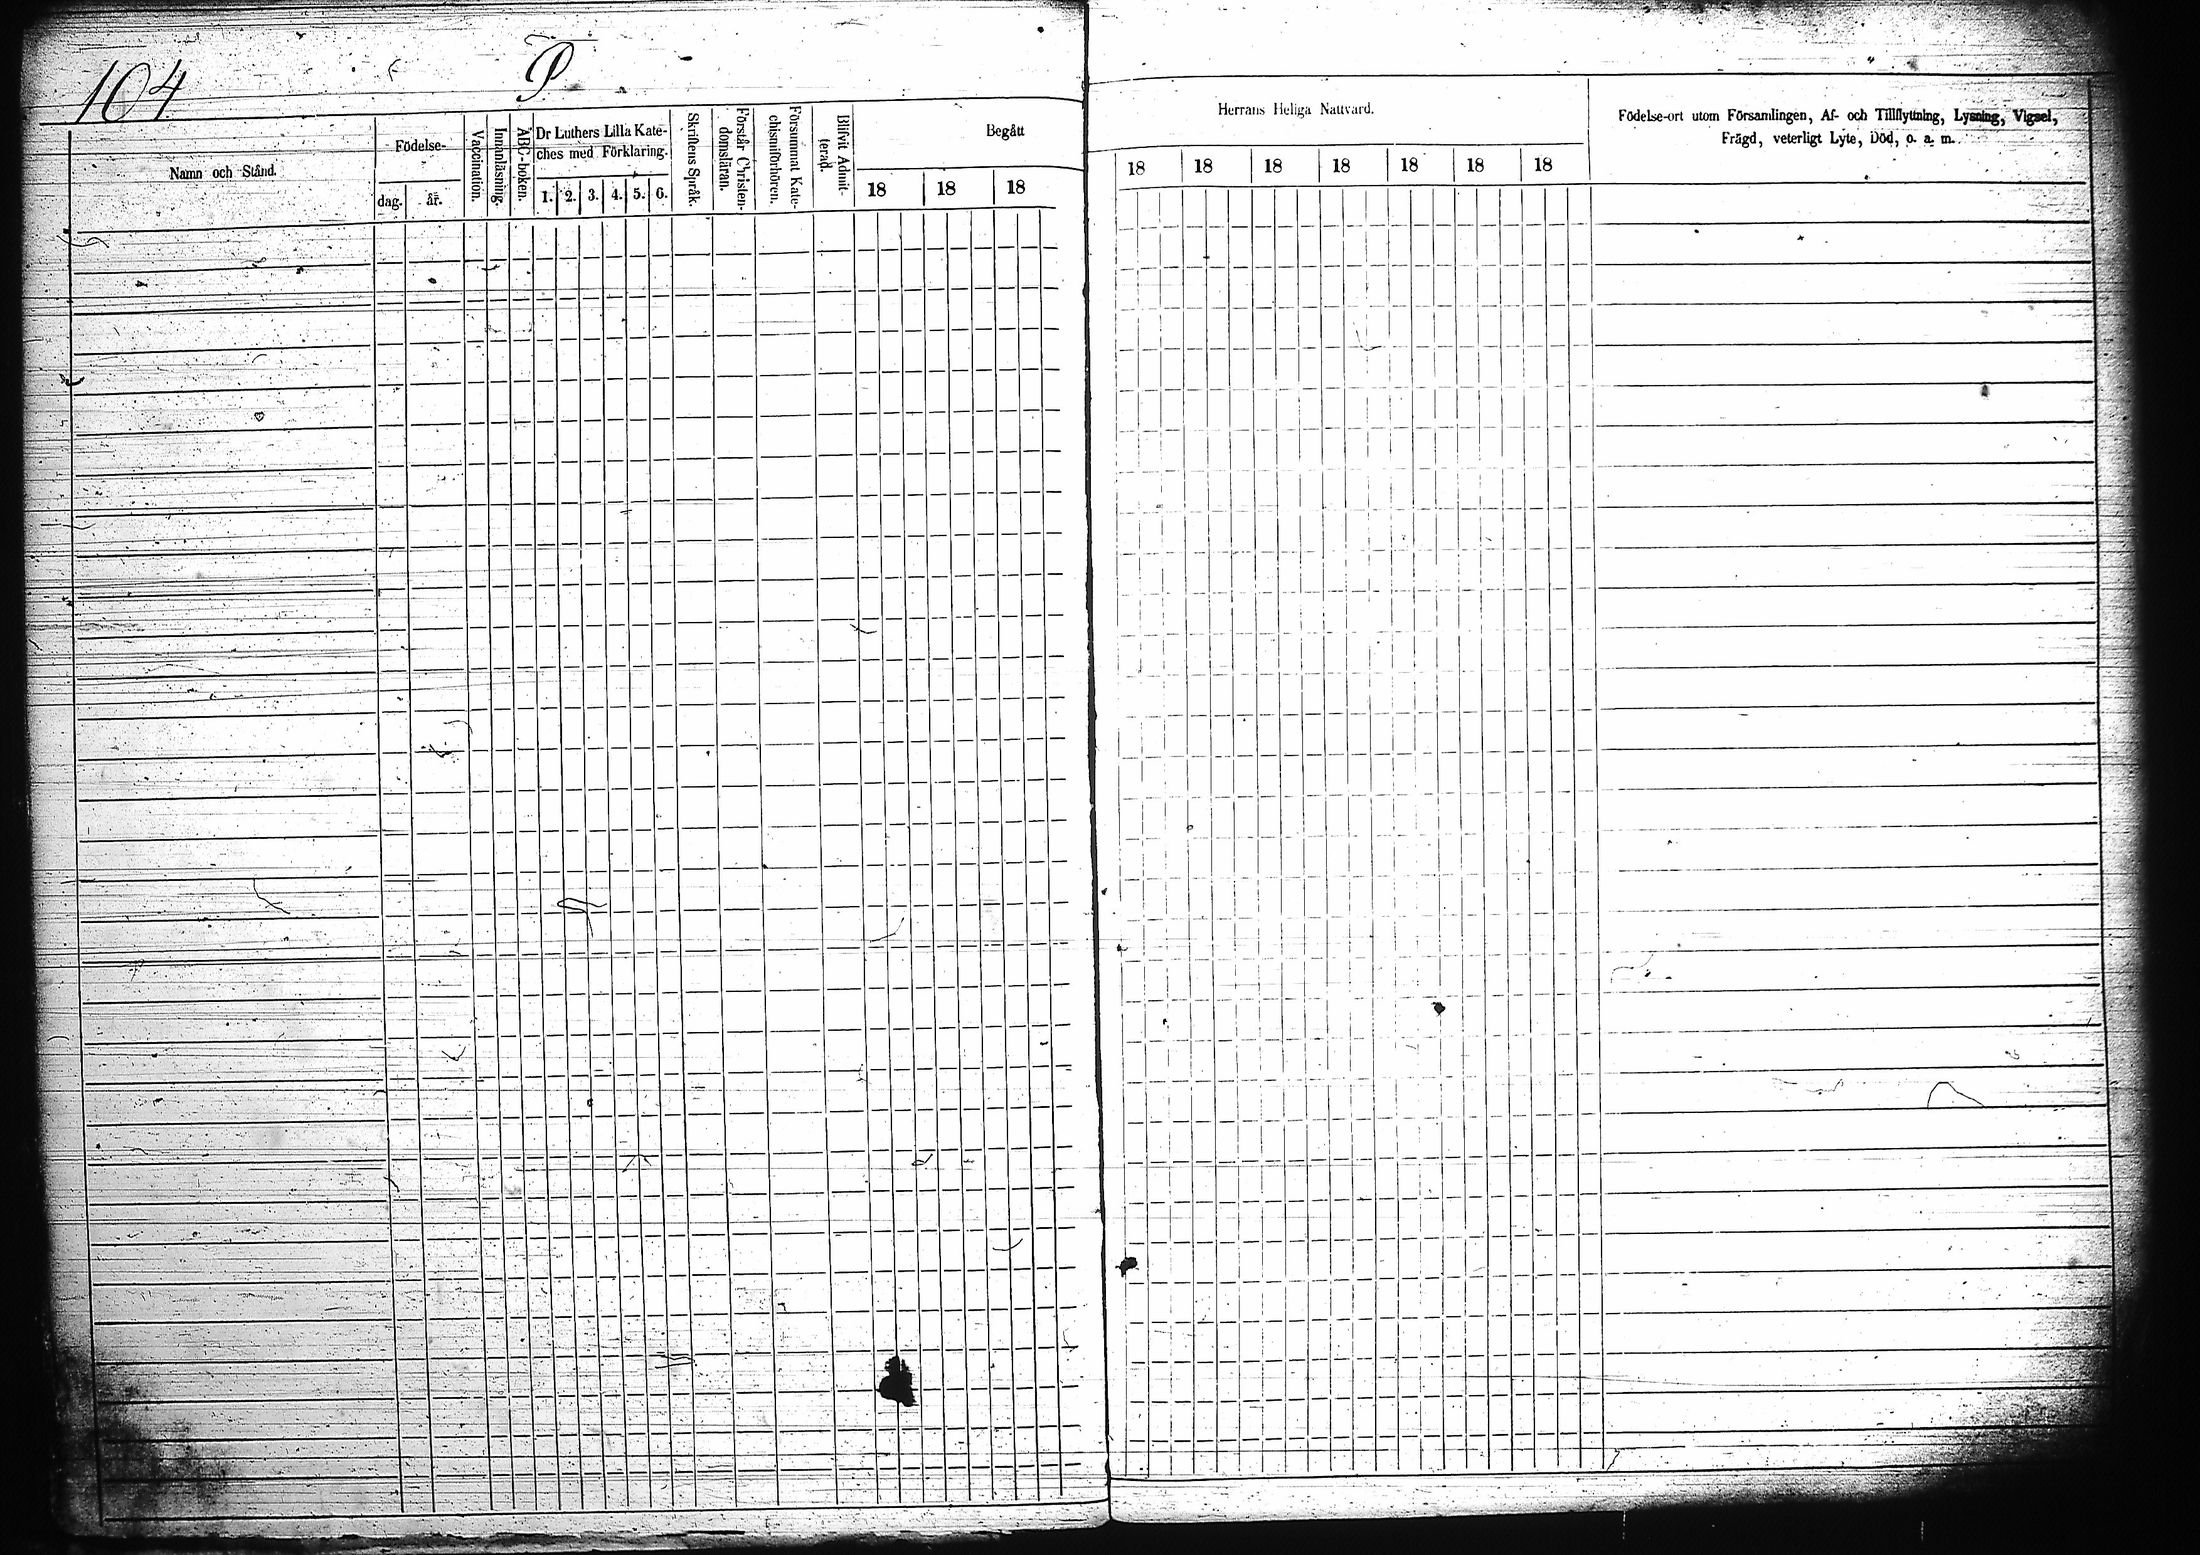 104
P
Namn och Stånd.
Födelse-
dag.
år.
Vaccination.
Innanläsning.
ABC-boken.
Dr Luthers Lilla Kate-
ches med Förklaring.
1. 2. 3. 4. 5. 6.
Skriftens Språk.
Förstår Christen-
domsläran.
Försummat Kate-
chismiförhören.
Blifvit Admit-
terad.
Begått
18 18 18
Herrans Heliga Nattvard.
18 18 18 18 18 18 18
Födelse-ort utom Församlingen, Af- och Tillflyttning, Lysning, Vigsel,
Frägd, veterligt Lyte, Död, o. a. m.